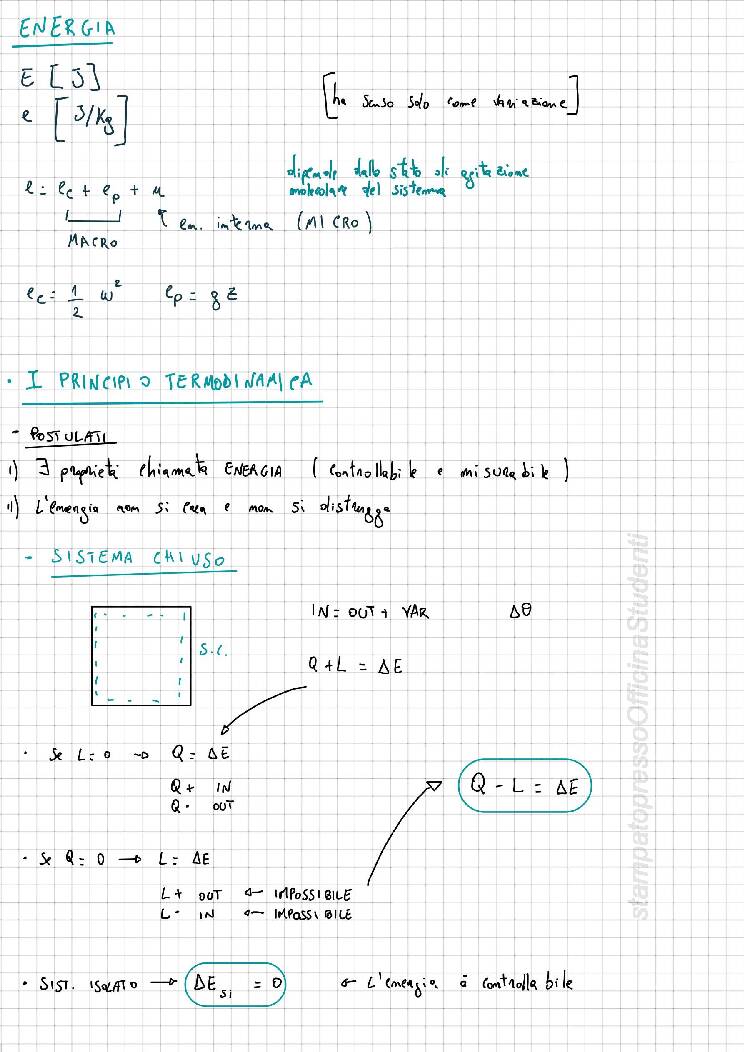 ENERGIA
E [J]
e [J/kg]
[ha senso solo come variazione]
e = ec + ep + u
MACRO
en. interna (MICRO)
dipende dallo stato di agitazione
molecolare del sistema
ec = 1/2 w²   ep = g z
· I PRINCIPIO TERMODINAMICA
- POSTULATI
I) ∃ proprietà chiamata ENERGIA (controllabile e misurabile)
II) L'energia non si crea e non si distrugge
- SISTEMA CHIUSO
S.C.
IN = OUT + VAR   Δθ
Q + L = ΔE
· Se L = 0 → Q = ΔE
Q+ IN
Q- OUT
Q - L = ΔE
· Se Q = 0 → L = ΔE
L+ OUT ← IMPOSSIBILE
L- IN ← IMPOSSIBILE
· SIST. ISOLATO → ΔE si = 0   ← L'energia è controllabile
stampatopressoOfficinaStudenti